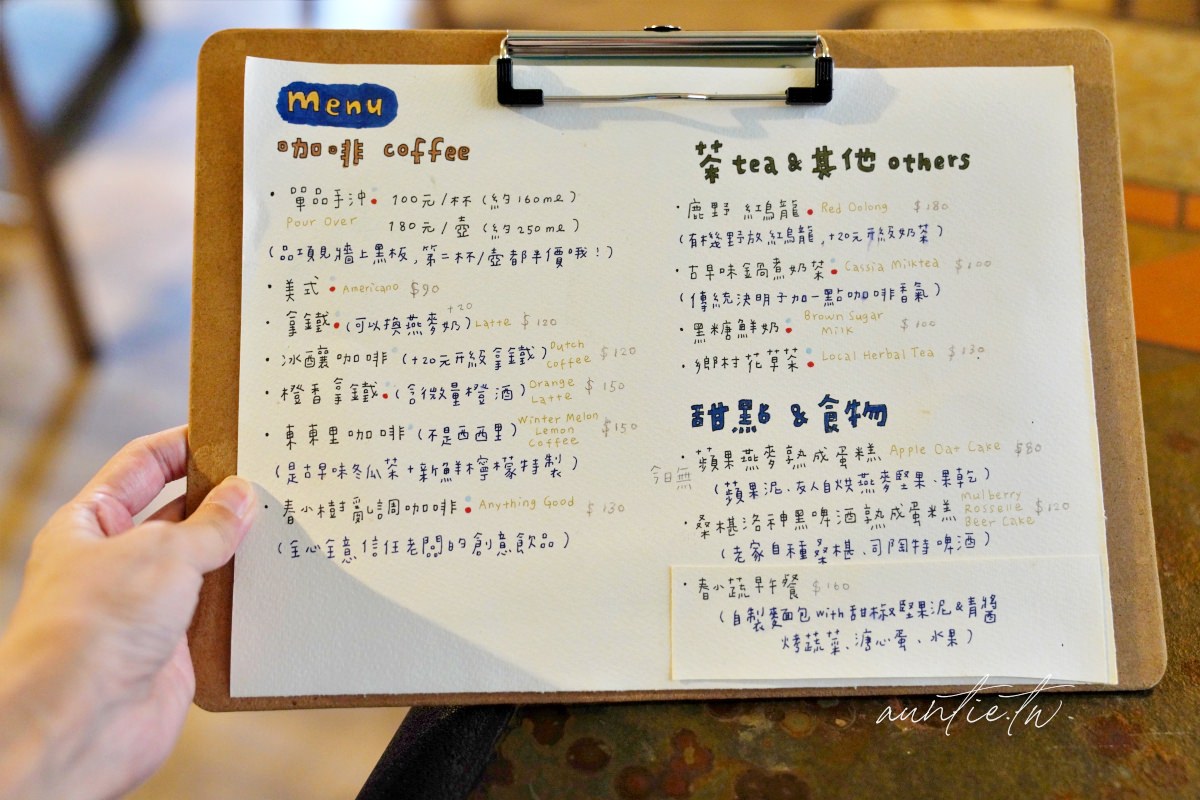 menu
咖啡 coffee
單品手沖 100元/杯 (約160ml)
Pour Over 180元/壺 (約250ml)
(品項見牆上黑板,第二杯/壺都半價哦!)
美式 Americano $90
+20
拿鐵 (可以換燕麥奶) Latte $120
冰釀咖啡 (+20元升級拿鐵) Dutch Coffee $120
橙香拿鐵 (含微量橙酒) Orange Latte $150
東東里咖啡 (不是西西里) Winter Melon Lemon Coffee $150
(是古早味冬瓜茶+新鮮檸檬特製)
春小樹亂調咖啡 Anything Good $130
(全心全意信任老闆的創意飲品)
茶 tea & 其他 others
鹿野 紅烏龍 Red Oolong $180
(有機野放紅烏龍,+20元升級奶茶)
古早味鍋煮奶茶 Cassia Milktea $100
(傳統決明子加一點咖啡香氣)
黑糖鮮奶 Brown Sugar Milk $100
鄉村花草茶 Local Herbal Tea $130
甜點 & 食物
蘋果燕麥熟成蛋糕 Apple Oat Cake $80
今日無
(蘋果泥、友人自烘燕麥堅果、果乾)
桑椹洛神黑啤酒熟成蛋糕 Mulberry Rosselle Beer Cake $120
(老家自種桑椹、司陶特啤酒)
春小蔬早午餐 $160
(自製麵包with甜椒堅果泥&青醬
烤蔬菜、溏心蛋、水果)
auntie.tw.